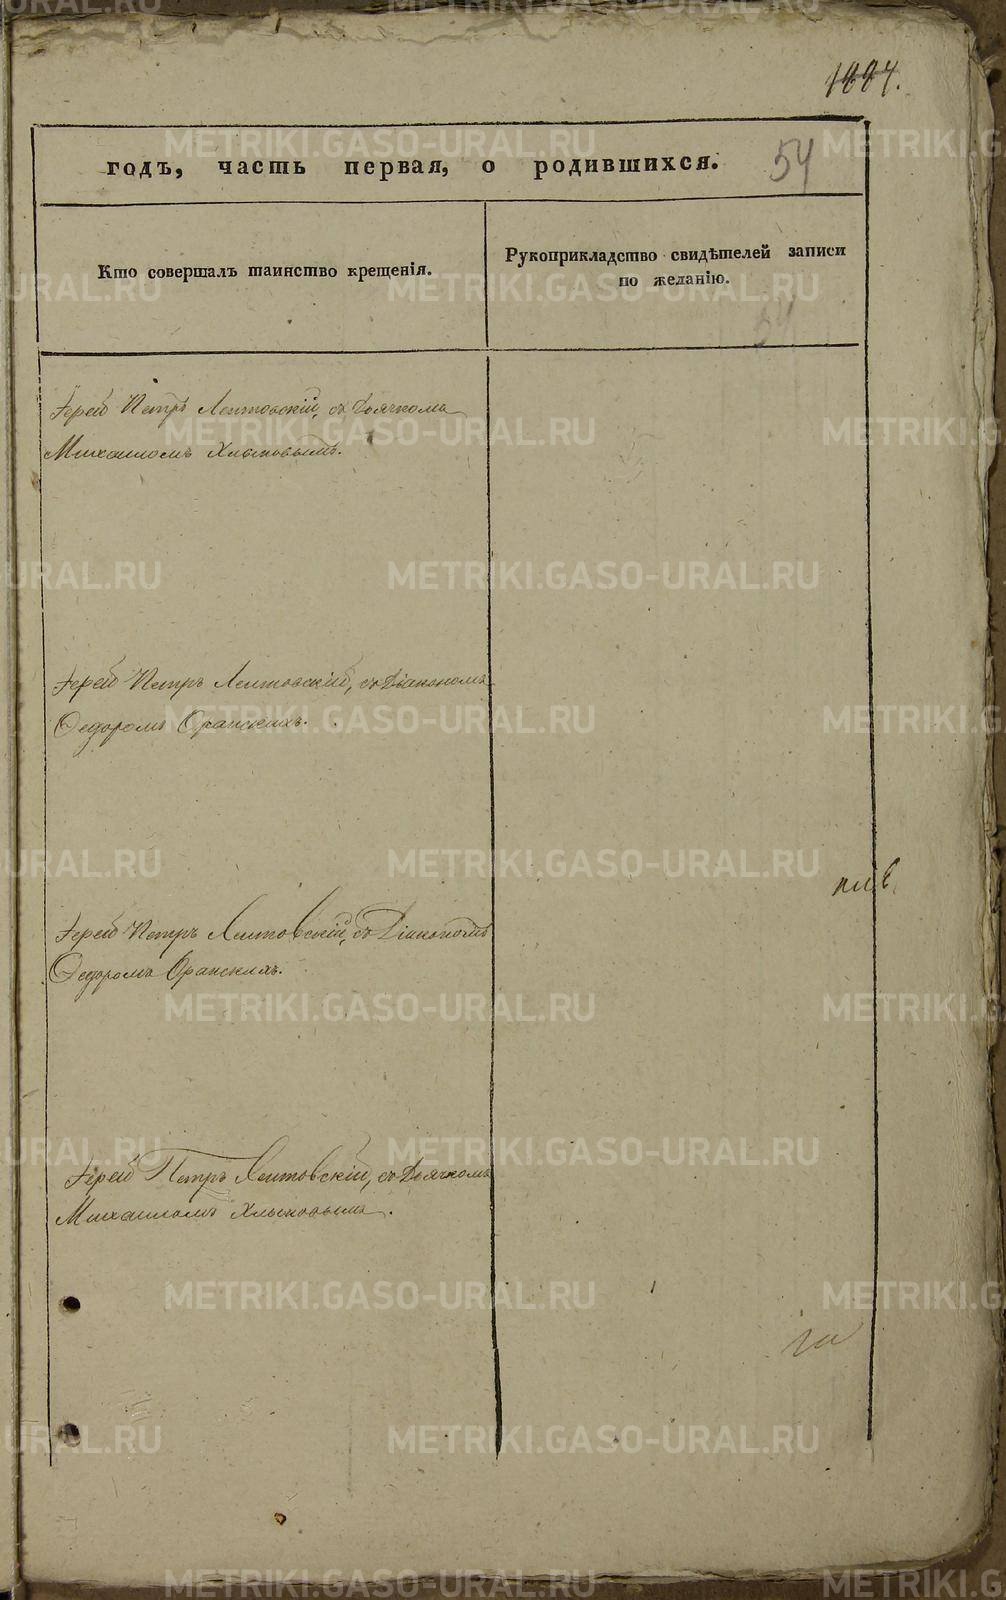 1884.
годъ, часть первая, о родившихся. 54
Кто совершалъ таинство крещенія.
Рукоприкладство свидѣтелей записи
по желанію.
54
Іерей Петръ Лентовскій, съ Дьячкомъ
Михаиломъ Хлыновымъ.
Іерей Петръ Лентовскій, съ Діакономъ
Ѳедоромъ Оранскихъ.
Іерей Петръ Лентовскій, съ Діакономъ
Ѳедоромъ Оранскихъ.
Іерей Петръ Лентовскій, съ Дьячкомъ
Михаиломъ Хлыновымъ.
METRIKI.GASO-URAL.RU